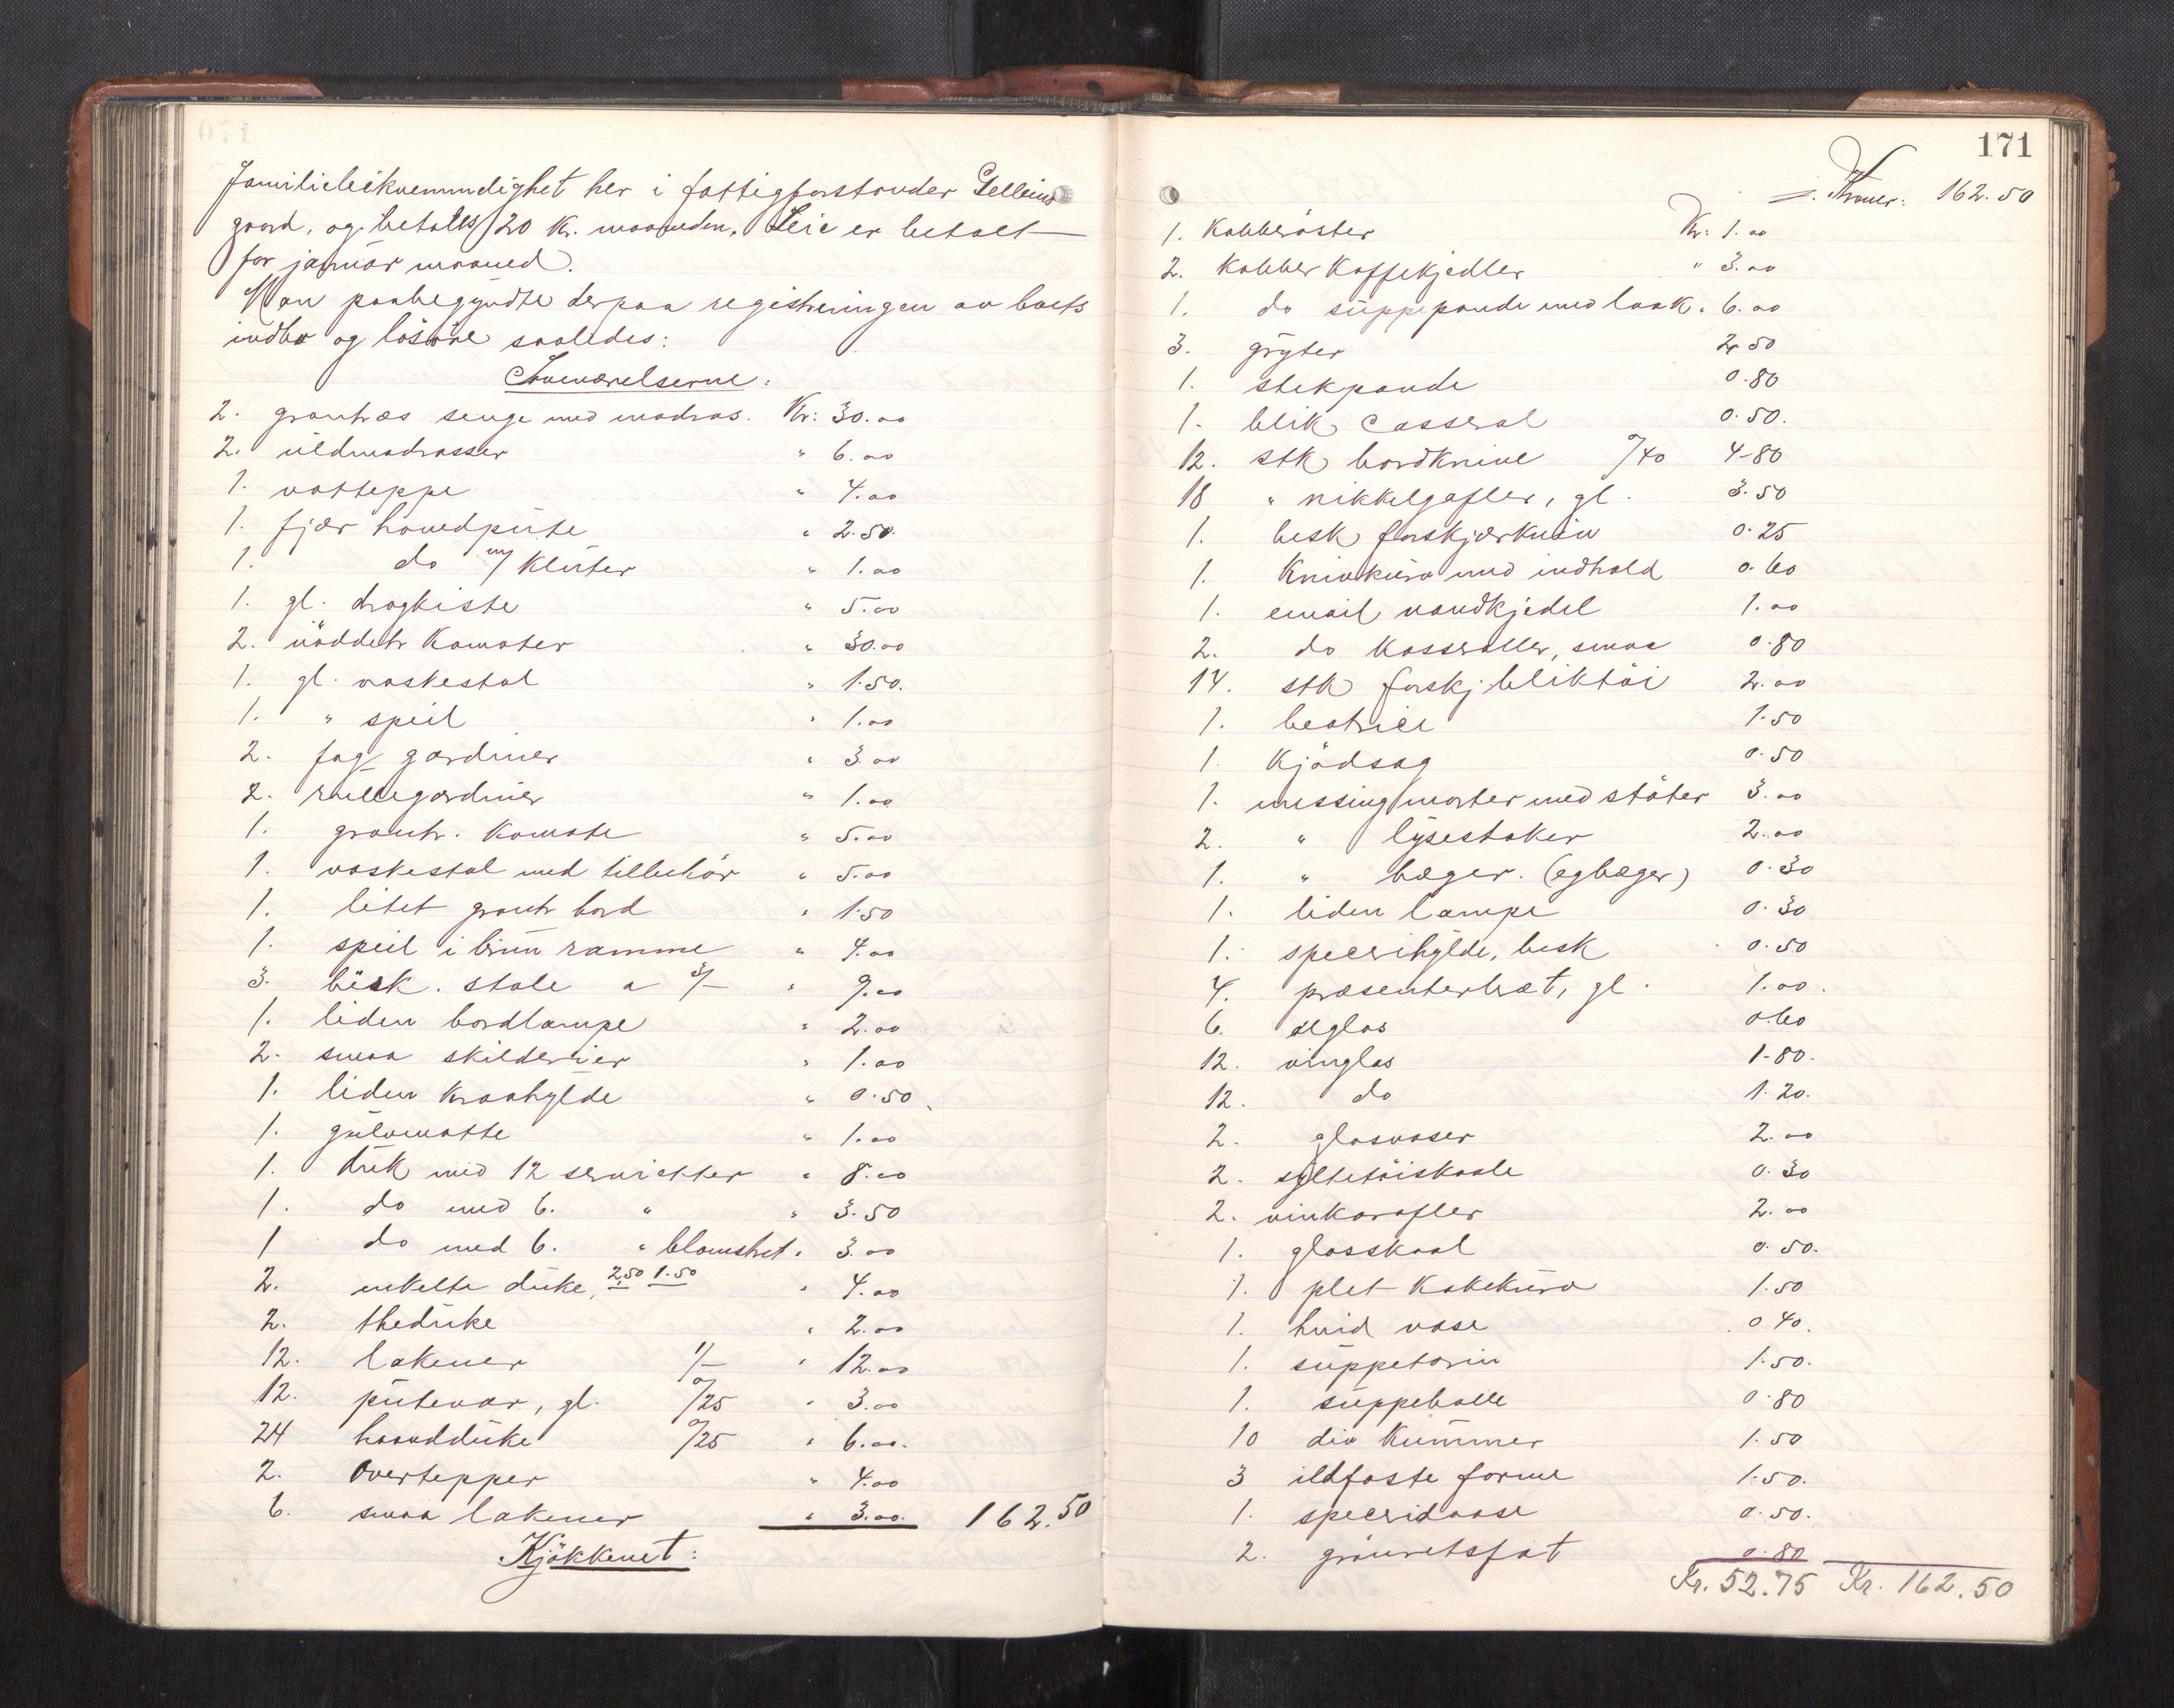 Familiebekvemmelighet her i fattigforstander Gelleins
gaard, og betales 120 Kr. maaneden. Leie er betalt
for januar maaned.
Man paabegyndte derpaa registreringen av boets
indbo og løsøre saaledes:
Soveværelserne:
2. grantræs senge med madras. Kr: 30.00
2. uldmadrasser " 6.00
1. vatteppe " 4.00
1. fjær hovedpute " 2.50.
1. do m/ kluter " 1.00
1. gl. dragkiste " 5.00
2. nøddetr Komoter " 30.00
1. gl. vaskestol " 1.50.
1. " speil " 1.00
2. fag gardiner " 3.00
2. rullegardiner " 1.00
1. grantr. Komode " 5.00
1. vaskestol med tilbehør " 5.00
1. litet grantr bord " 1.50
1. speil i brun ramme " 4.00
3. besk. stole a 3/- " 9.00
1. liden bordlampe " 2.00
2. smaa skilderier " 1.00
1. liden kraahylde " 0.50.
1. gulvmatte " 1.00
1. duk med 12 servietter " 8.00
1. do med 6. " " 3.50
1 do med 6. " blomstret " 3.00
2. enkelte duke, 2.50 1.50 " 4.00
2. theduke " 2.00
12. lakener 1/- " 12.00
12. putevar, gl. 0/25 " 3.00
24 haandduke 0/25 " 6.00.
2. overtepper " 4.00
6. smaa lakener " 3.00. 162.50
Kjøkkenet:
171
Kroner: 162.50
1. Kobberøster Kr: 1.00
2. Kobber Kaffekjedler " 3.00
1. do suppepande med laak. " 6.00
3. gryter 2.50
1. stekpande 0.80
1. blik Casserol 0.50.
12. stk bordknive 0/40 4-80
18 " nikkelgafler, gl. 3.50
1. besk forskjærkniv 0.25
1. Knivkurv med indhold 0.60
1. email vandkjedel 1.00
2. do Kasseroller, smaa 0.80
14. stk forskj. bliktøi 2.00
1. beatrice 1.50
1. Kjødsag 0.50
1. messing morter med støter 3.00
2. " lysestaker 2.00
1. " bæger. (egbæger) 0.30
1. liden lampe 0.30
1. specerihylde, besk 0.50
4. præsenterbræt, gl. 1.00.
6. ølglas 0.60
12. vinglas 1-80.
12. do 1.20.
2. glasvaser 2.00
2. syltetøiskaale 0.30
2. vinkarafler 2.00
1. glasskaal 0.50.
1. plet Kakekurv 1.50
1. hvid vase 0 40.
1. suppeterin 1.50.
1. suppebolle 0.80
10 div Kummer 1.50
3 ildfaste forme 1.50.
1. speceridaase 0.50.
2. grønretsfat 0.80
Kr. 52.75 Kr. 162.50